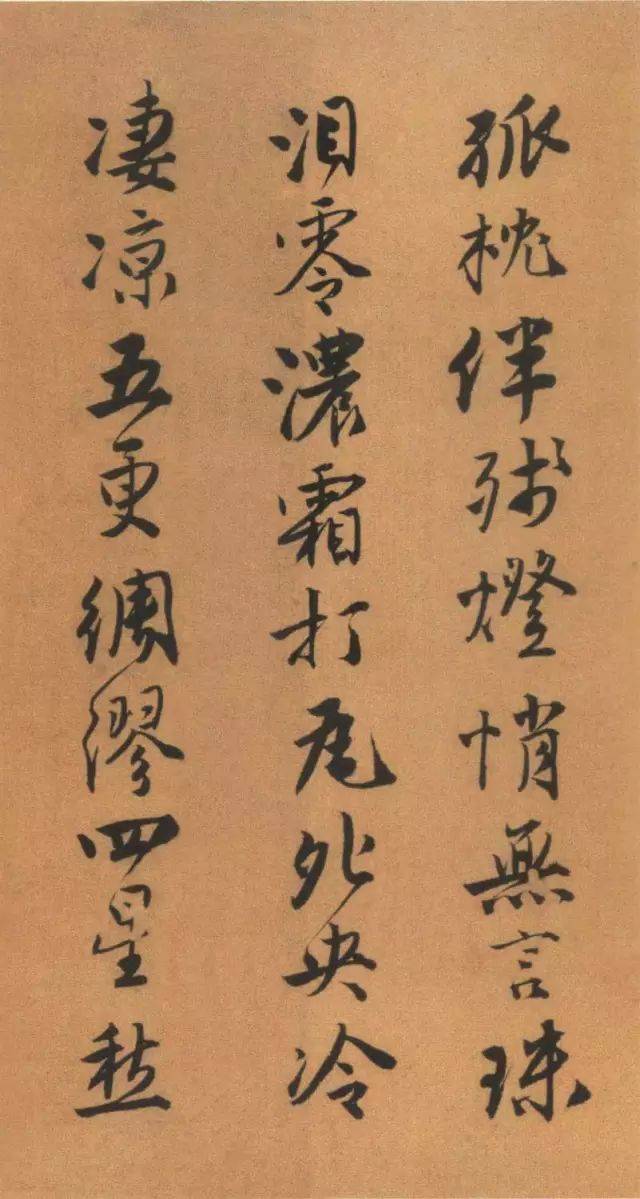 孤枕伴殘燈悄無言珠
泪零濃霜打瓦夗央冷
凄凉五更綢繆四星愁